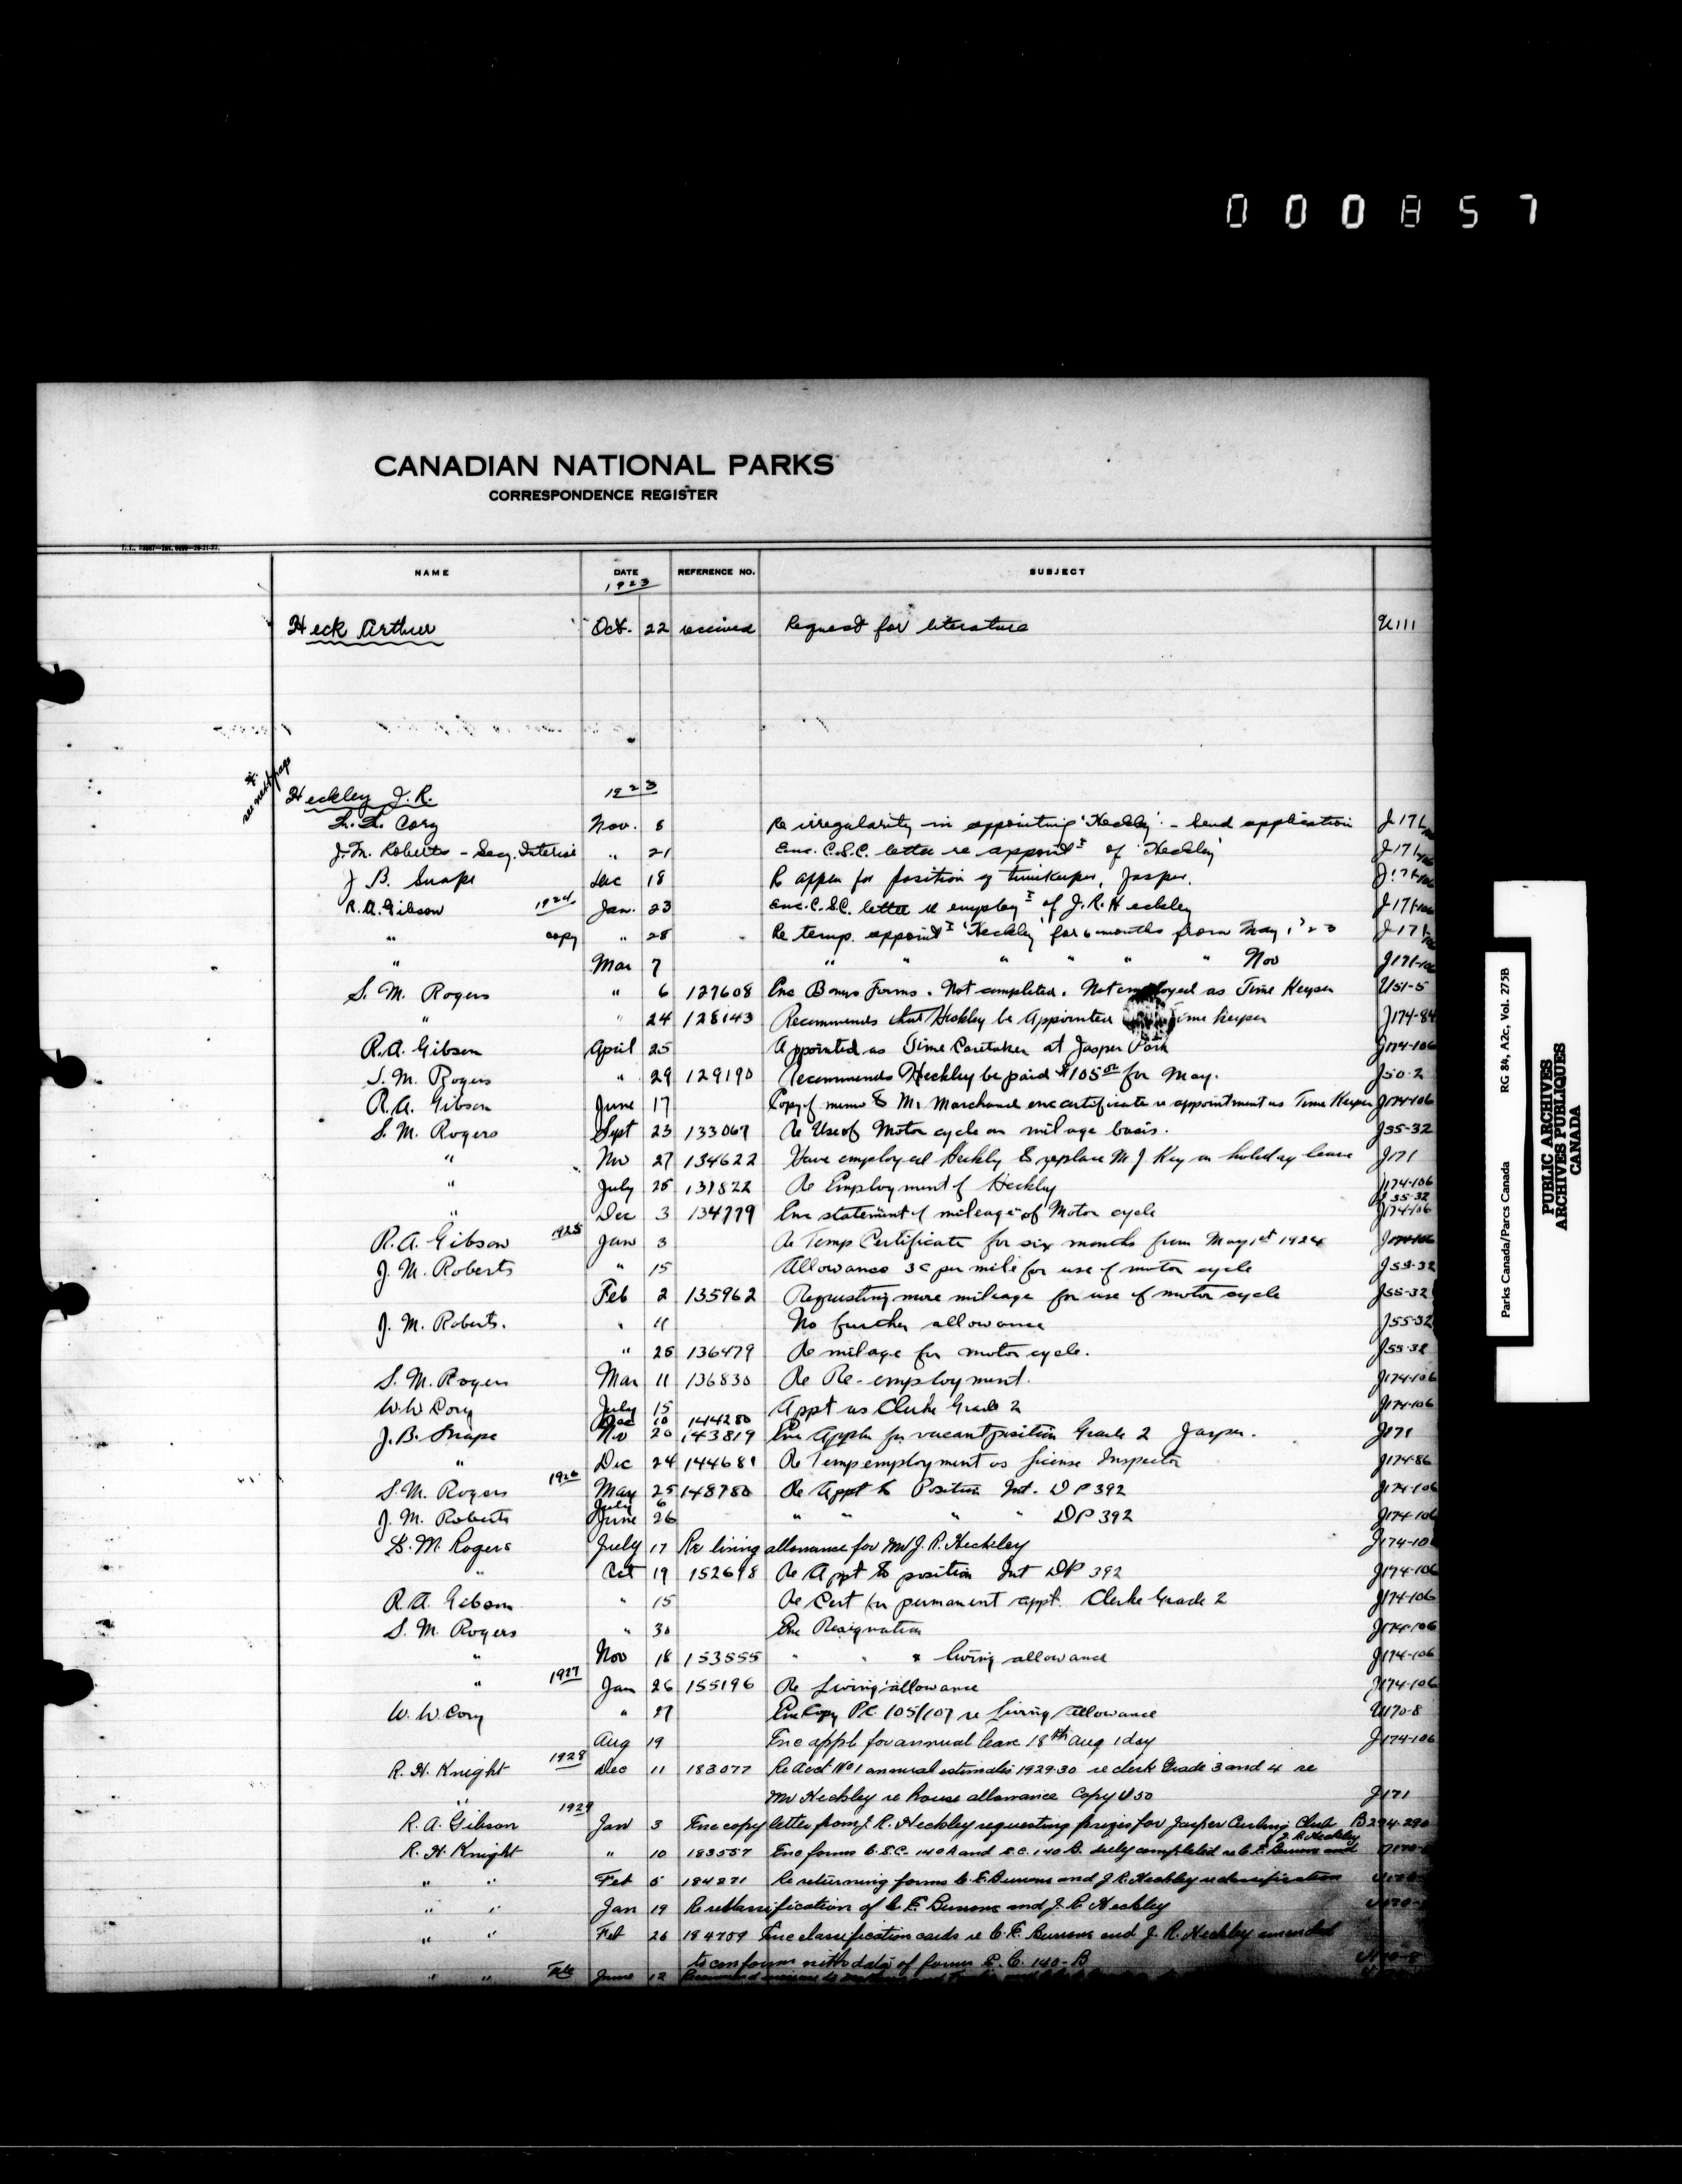 000857
CANADIAN NATIONAL PARKS
CORRESPONDENCE REGISTER
NAME DATE REFERENCE NO. SUBJECT
1923
Heck Arthur Oct. 22 received Request for literature U111
* see next page
Heckley J. R. 1923
Cory Nov. 8 Re irregularity in appointing 'Heckley' - send application J171
J. M. Roberts - Secy. Interior " 21 Enc. C.S.C. letter re appoint t of 'Heckley' J171-106
J B. Snape Dec 18 R appln for position of timekeeper, Jasper. J171-106
R. A. Gibson 1924 Jan. 23 Enc. C.S.C. letter re employ t of J. R. Heckley J171-106
" copy " 28 Re temp. appoint t 'Heckley' for 6 months from May 1 '23 J171-106
" Mar 7 " " " " " " Nov J171-106
S. M. Rogers " 6 127608 Enc Bonus Forms. Not completed. Not employed as Time Keeper U51-5
" " 24 128143 Recommends that Heckley be Appointed Time Keeper J174-84
R. A. Gibson April 25 Appointed as Time Caretaker at Jasper Park J174-106
S. M. Rogers " 29 129190 Recommends Heckley be paid $105 00 for May. J50-2
R. A. Gibson June 17 Copy of memo to Mr Marchand enc certificate re appointment as Time Keeper J174-106
S. M. Rogers Sept 23 133067 Re Use of Motor cycle on milage basis. J55-32
" Nov 27 134622 Have employed Heckly to replace M. J Key on holiday leave J171
" July 25 131822 Re Employment of Heckley J174-106
J55-32
" Dec 3 134779 Enc statement of mileage of Motor cycle J174-106
R. A. Gibson 1925 Jan 3 Re Temp Certificate for six months from May 1st 1924 J174-106
J. M. Roberts " 15 Allowance 3c per mile for use of motor cycle J55-32
Feb 2 135962 Requesting more mileage for use of motor cycle J55-32
J. M. Roberts. " 11 No further allowance J55-32
" 25 136479 Re milage for motor cycle. J55-32
S. M. Rogers Mar 11 136830 Re Re-employment. J174-106
W. W Cory July 15 Appt as Clerk Grade 2 J174-106
Dec 10 144280
J. B. Snape Nov 20 143819 Enc Appln for vacant position Grade 2 Jasper. J171
" Dec 24 144681 Re Temp employment as License Inspector J174-86
S. M. Rogers 1926 May 25 148780 Re Appt to Position Int. D P 392 J174-106
July 6
J. M. Roberts June 26 " " " " D P 392 J174-106
S. M. Rogers July 17 Re living allowance for Mr J. R. Heckley J174-106
" Oct 19 152698 Re Appt to position Int DP 392 J174-106
R. A. Gibson " 15 Re Cert for permanent appt. Clerk Grade 2 J174-106
S. M. Rogers " 30 Enc Resignation J174-106
" Nov 18 153555 " " & living allowance J174-106
" 1927 Jan 26 155196 Re Living allowance J174-106
W. W. Cory " 27 Enc Copy P.C. 105/107 re Living Allowance U170-8
Aug 19 Enc appl. for annual leave 18th Aug 1 day J174-106
R. H. Knight 1928 Dec 11 183077 Re Acct No 1 annual estimates 1929-30 re clerk Grade 3 and 4 re
Mr Heckley re house allowance Copy U50 J171
R. A. Gibson 1929 Jan 3 Enc copy letter from J. R. Heckley requesting prizes for Jasper Curling Club B294-290
R. H. Knight " 10 183557 Enc forms C.S.C. 140 A and S.C. 140 B. duly completed re C. E. Burrows and J. R. Heckley
" " Feb 5 184271 Re returning forms C. E. Burrows and J. R. Heckley reclassification
" " Jan 19 Re reclassification of C E Burrows and J. R Heckley
" " Feb 26 184709 Enc classification cards re C. E. Burrows and J. R. Heckley amended
to conform with data of forms C. C. 140-B U170-8
" " June 12
Parks Canada/Parcs Canada RG 84, A2c, Vol. 275B
PUBLIC ARCHIVES
ARCHIVES PUBLIQUES
CANADA